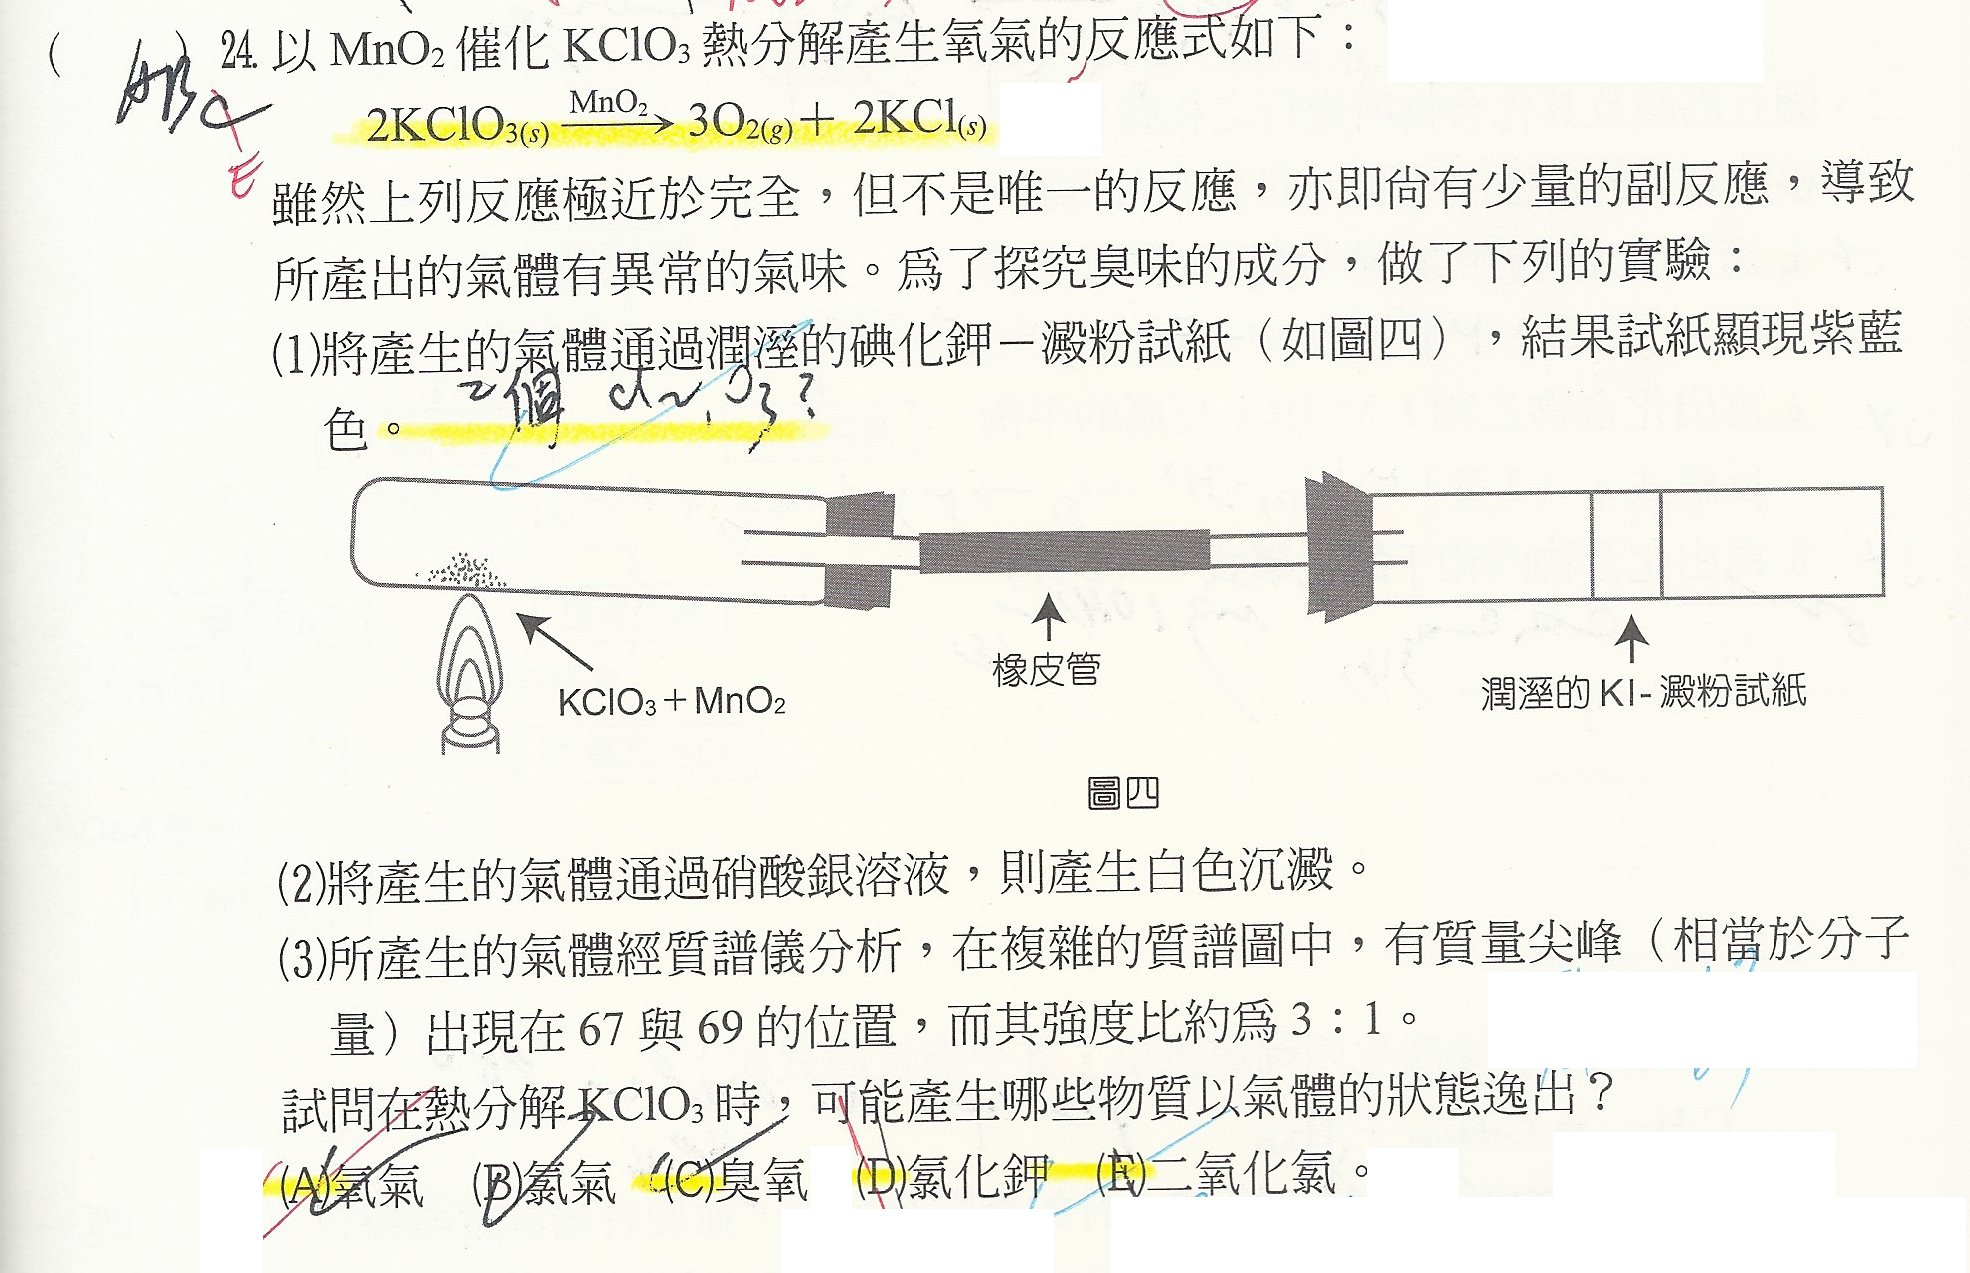 ( ABC ) 24. 以 MnO₂ 催化 KClO₃ 熱分解產生氧氣的反應式如下：
2KClO₃(s) MnO₂ → 3O₂(g) + 2KCl(s)
E
雖然上列反應極近於完全，但不是唯一的反應，亦即尚有少量的副反應，導致
所產出的氣體有異常的氣味。為了探究臭味的成分，做了下列的實驗：
(1)將產生的氣體通過潤溼的碘化鉀－澱粉試紙（如圖四），結果試紙顯現紫藍
二個 cl₂, O₃?
色。
KClO₃＋MnO₂
橡皮管
潤溼的 KI - 澱粉試紙
圖四
(2)將產生的氣體通過硝酸銀溶液，則產生白色沉澱。
(3)所產生的氣體經質譜儀分析，在複雜的質譜圖中，有質量尖峰（相當於分子
量）出現在 67 與 69 的位置，而其強度比約為 3：1。
試問在熱分解 KClO₃ 時，可能產生哪些物質以氣體的狀態逸出？
(A)氧氣 (B)氯氣 (C)臭氧 (D)氯化鉀 (E)二氧化氯。